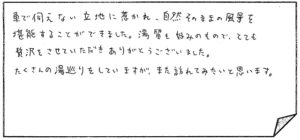 車で伺えない立地に惹かれ、自然そのままの風景を
堪能することができました。湯質も好みのもので、とても
贅沢をさせていただきありがとうございました。
たくさんの湯巡りをしていますが、また訪れてみたいと思います。